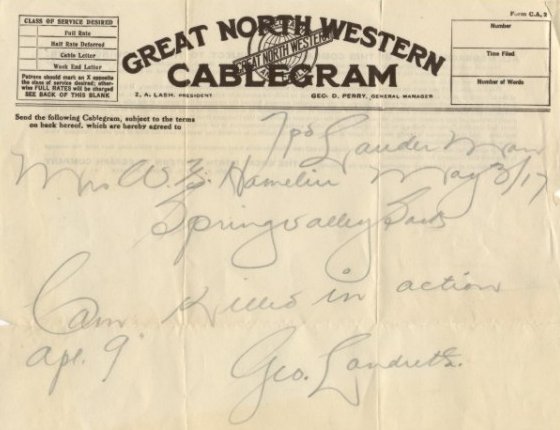 Form C.A. 2
CLASS OF SERVICE DESIRED
Full Rate
Half Rate Deferred
Cable Letter
Week End Letter
Patrons should mark an X opposite
the class of service desired; other-
wise FULL RATES will be charged
SEE BACK OF THIS BLANK
GREAT NORTH WESTERN
GREAT NORTH WESTERN
CABLEGRAM
Z. A. LASH, PRESIDENT
GEO. D. PERRY, GENERAL MANAGER
Number
Time Filed
Number of Words
Send the following Cablegram, subject to the terms
on back hereof, which are hereby agreed to
Lauder Man
Mrs W. Hamelin May 3/17
Springvalley Sask
Cam Killed in action
Apl. 9
Geo. Landreth.